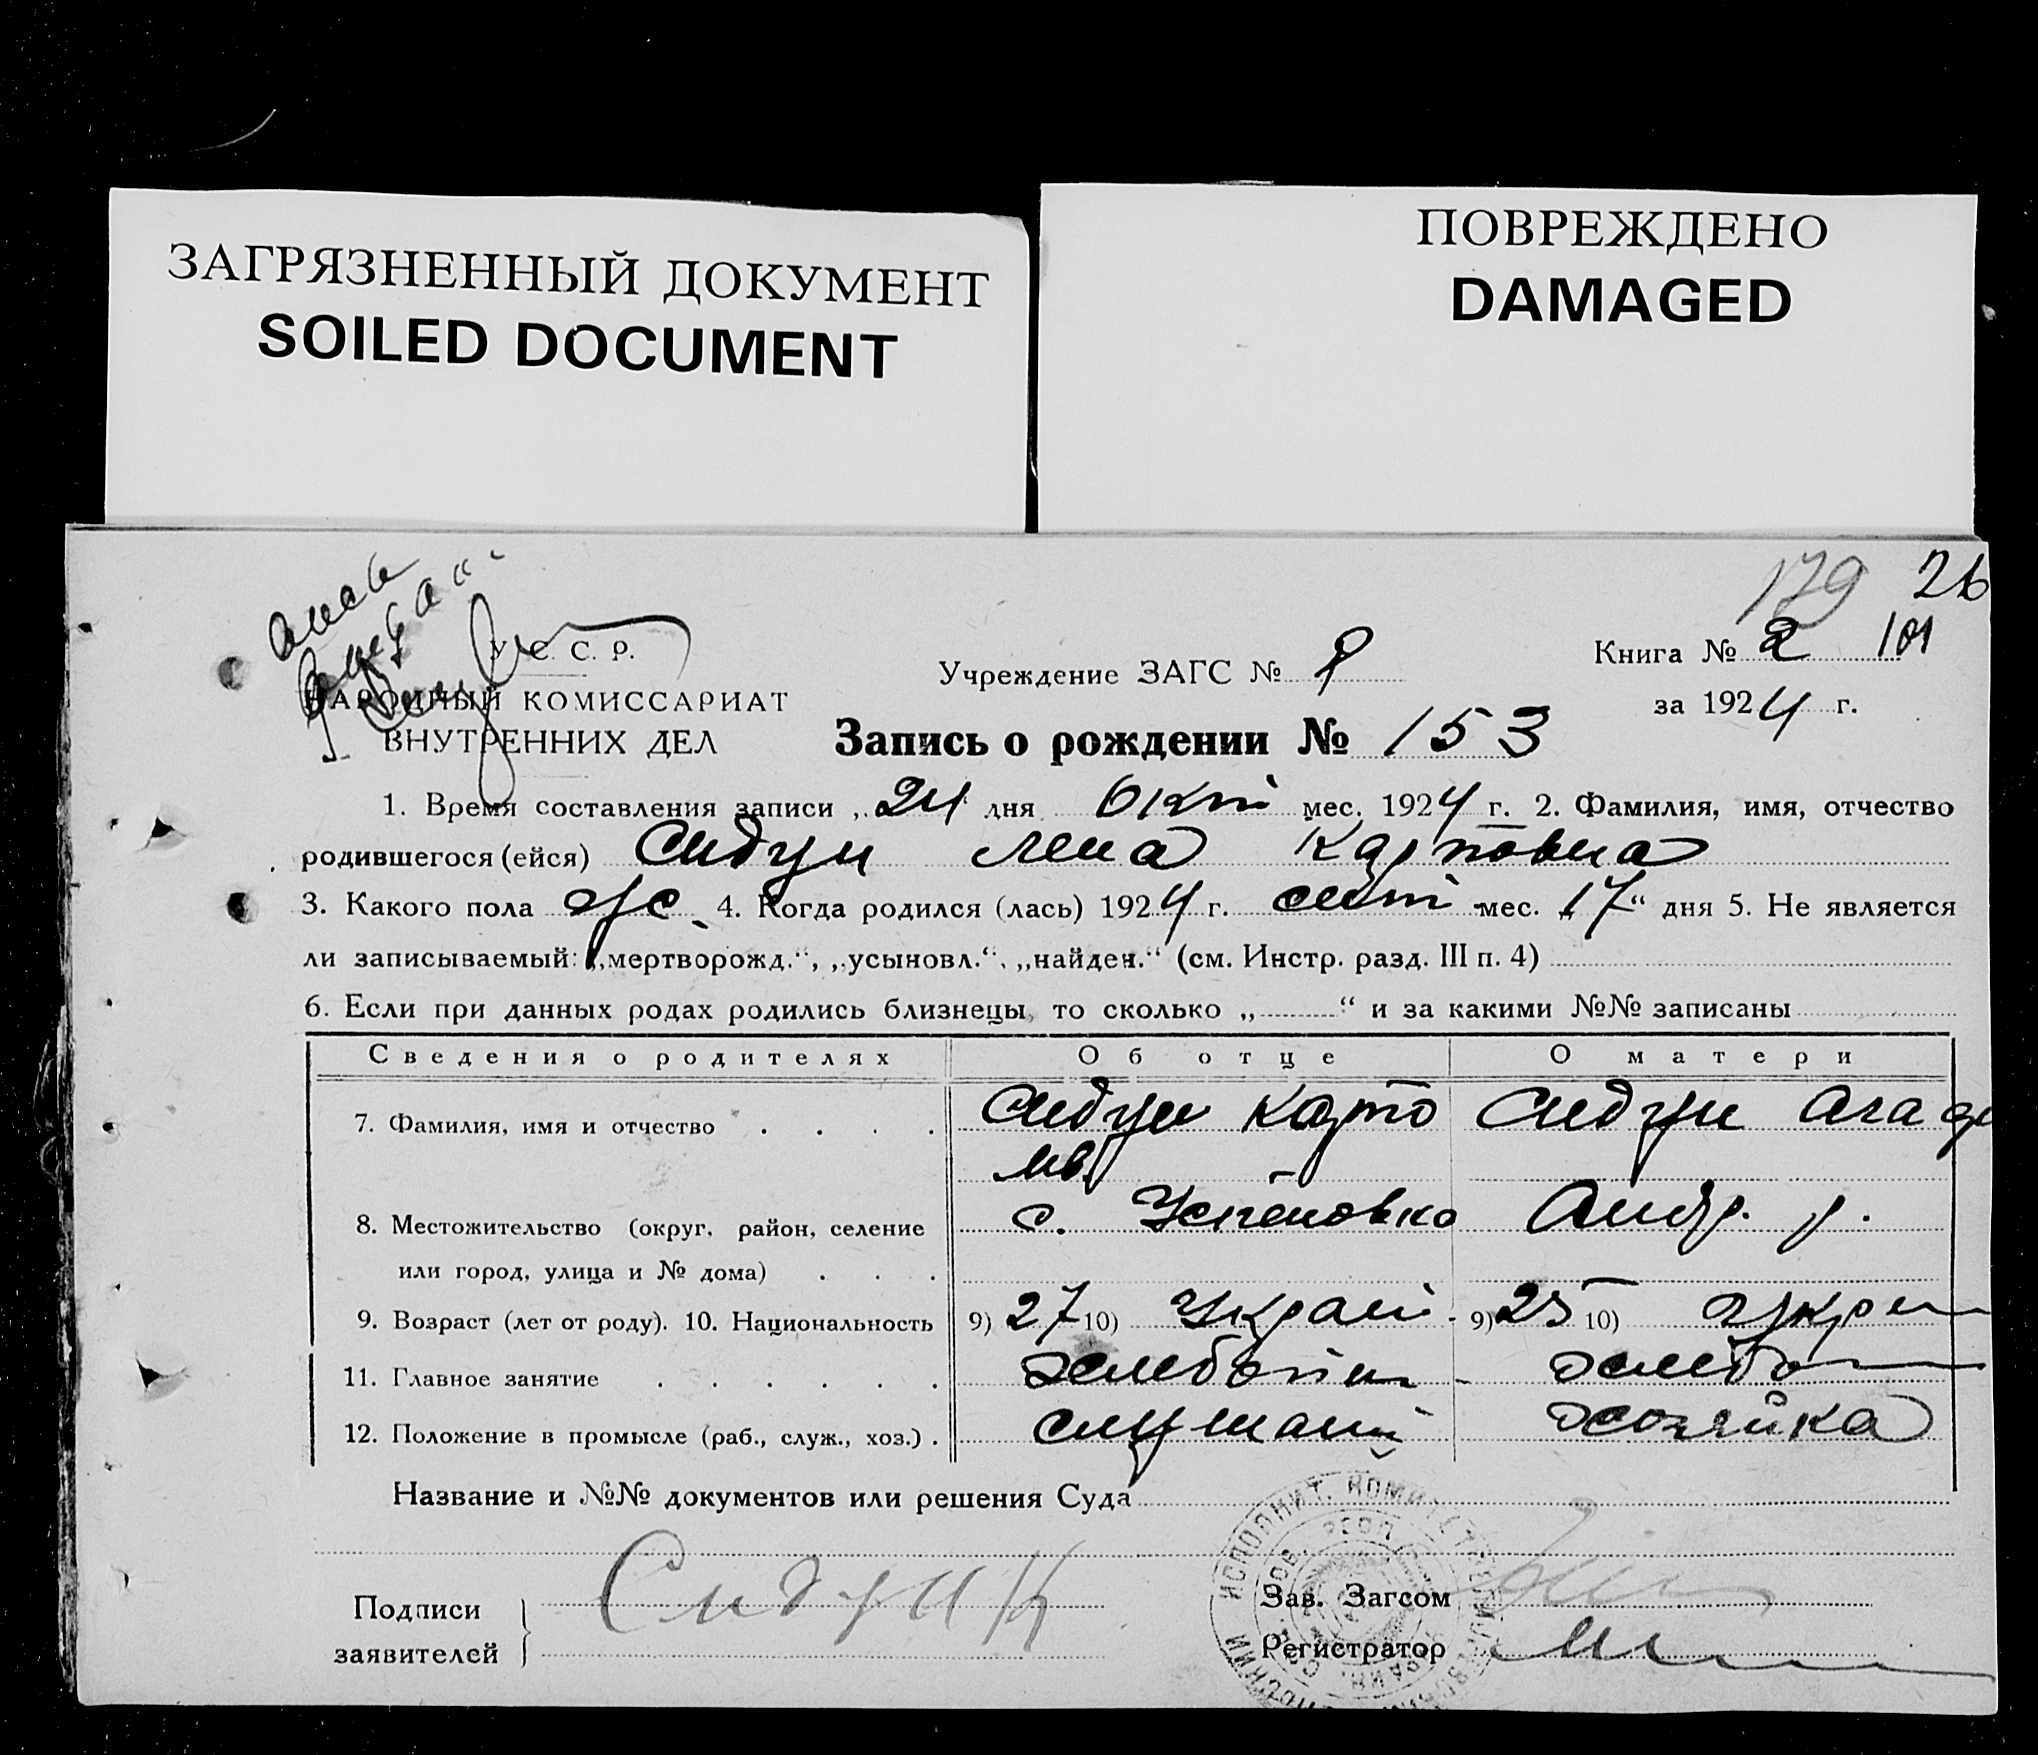 ЗАГРЯЗНЕННЫЙ ДОКУМЕНТ
SOILED DOCUMENT
ПОВРЕЖДЕНО
DAMAGED
179 26
У. С. С. Р.
НАРОДНЫЙ КОМИССАРИАТ
ВНУТРЕННИХ ДЕЛ
Учреждение ЗАГС №
Книга № 2 101
за 1924 г.
Запись о рождении № 153
1. Время составления записи „24“ дня Окт мес. 1924 г. 2. Фамилия, имя, отчество
родившегося (ейся) Сидун Лена Карповна
3. Какого пола ж. 4. Когда родился (лась) 1924 г. сент мес. „17“ дня 5. Не является
ли записываемый: „мертворожд.“, „усыновл.“, „найден.“ (см. Инстр. разд. III п. 4)
6. Если при данных родах родились близнецы, то сколько „ “ и за какими №№ записаны
Сведения о родителях Об отце О матери
7. Фамилия, имя и отчество Сидун Карпо Сидун Агаф
Ив.
8. Местожительство (округ, район, селение с. Успеновка Андр. р.
или город, улица и № дома)
9. Возраст (лет от роду). 10. Национальность 9) 27 10) Украин 9) 25 10) Укра
11. Главное занятие хлебопаш хлебо
12. Положение в промысле (раб., служ., хоз.) хозяйка
Название и №№ документов или решения Суда
Подписи
заявителей
Сидун К
Зав. Загсом
Регистратор